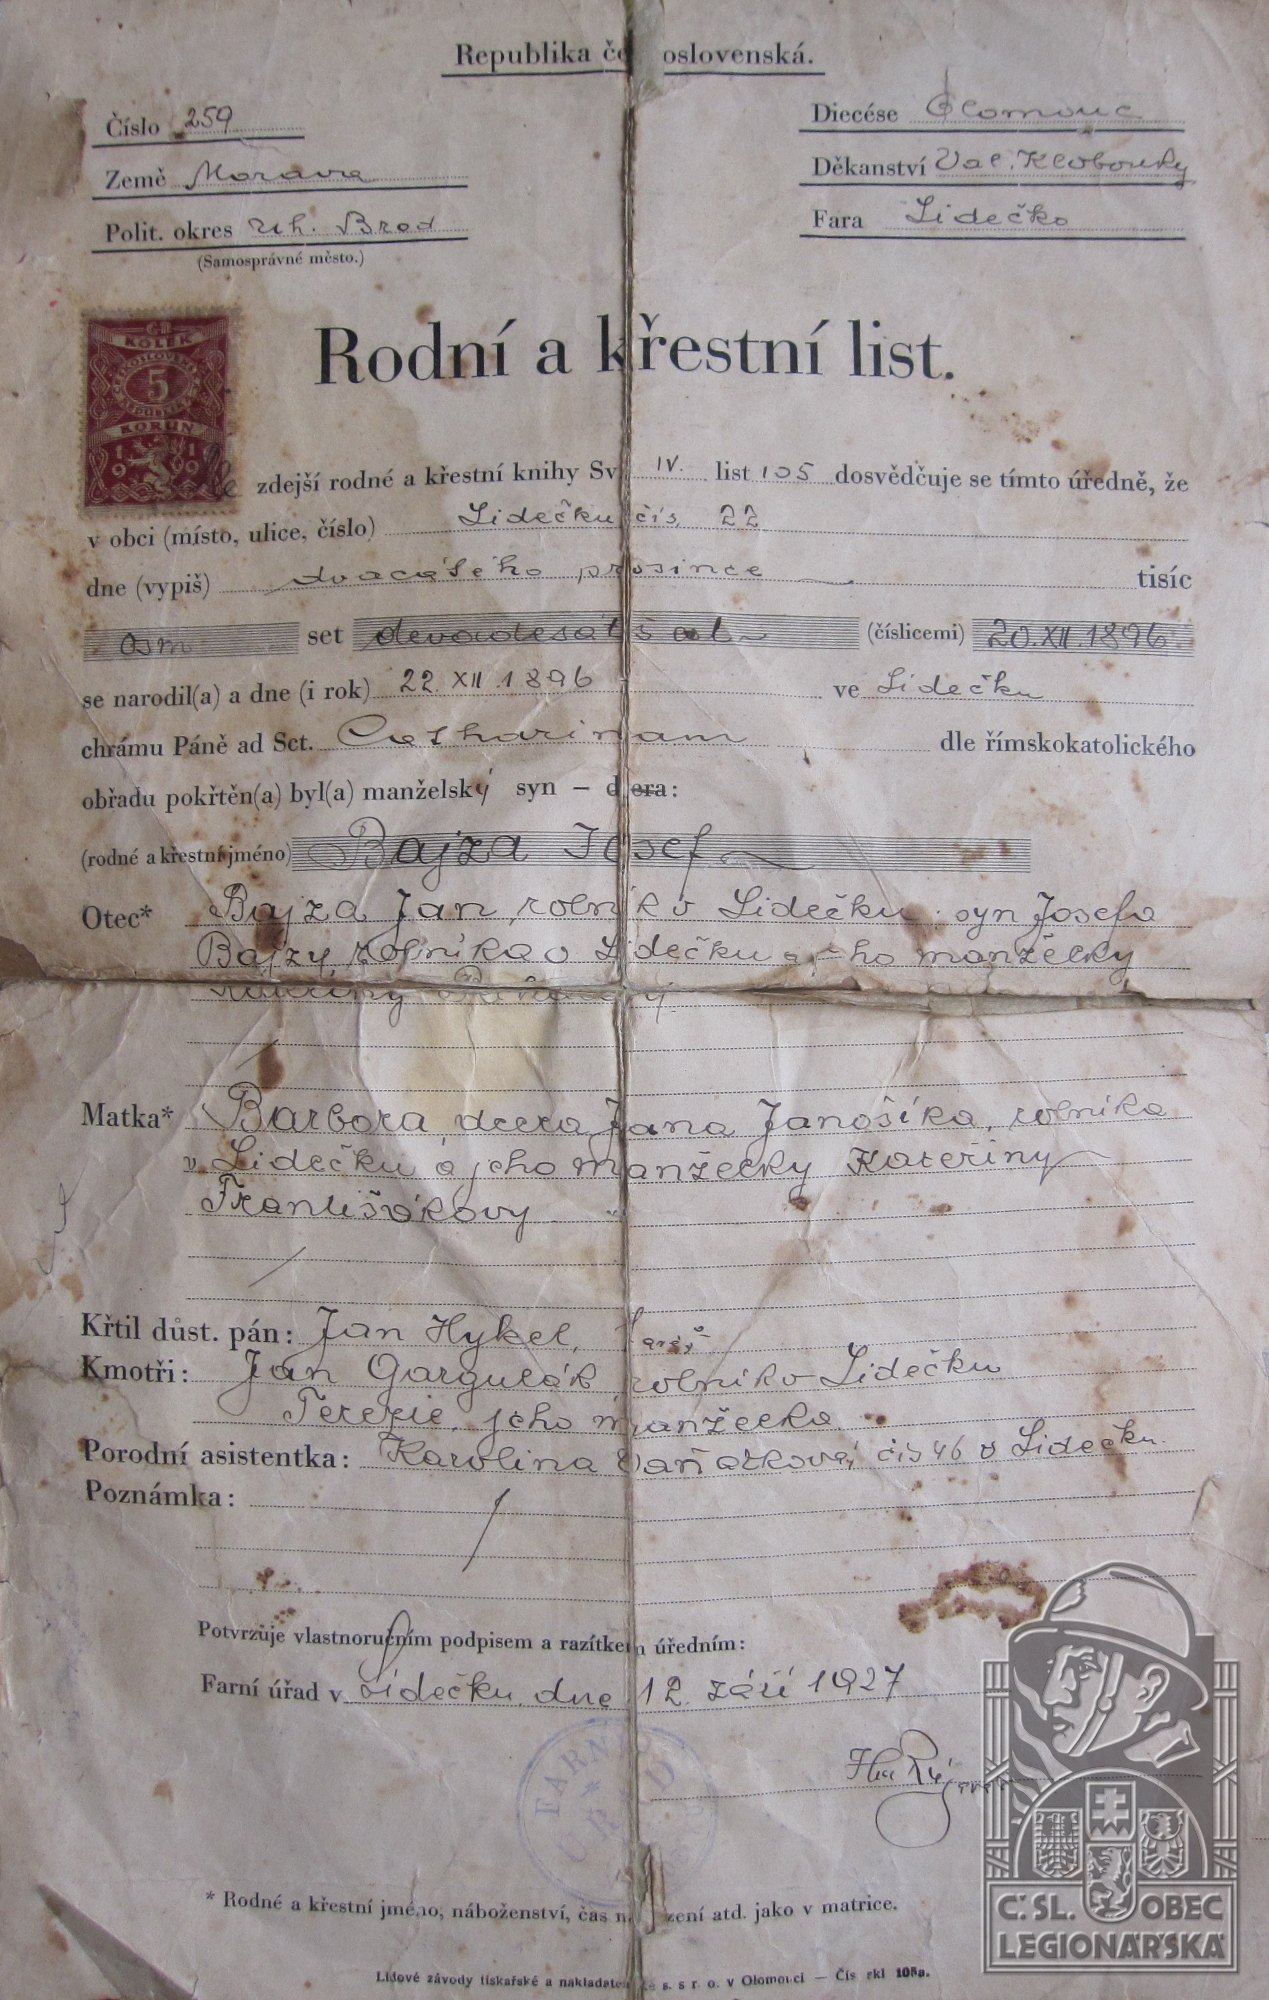 Republika če oslovenská.
Číslo 259
Diecése Olomouc
Země Morava
Děkanství Val. Klobouky
Polit. okres Uh. Brod
Fara Lidečko
(Samosprávné město.)
KOLEK
5
KORUN
1919
Rodní a křestní list.
Ze zdejší rodné a křestní knihy Sv. IV. list 105 dosvědčuje se tímto úředně, že
v obci (místo, ulice, číslo) Lidečku čís. 22
dne (vypiš) dvacátého prosince tisíc
osm set devadesát šest (číslicemi) 20.XII.1896.
se narodil(a) a dne (i rok) 22. XII. 1896 ve Lidečku
chrámu Páně ad Sct. Catharinam dle římskokatolického
obřadu pokřtěn(a) byl(a) manželský syn – dcera:
(rodné a křestní jméno) Bajza Josef
Otec* Bajza Jan, rolník v Lidečku, syn Josefa
Bajzy, rolníka v Lidečku a jeho manželky
Kateřiny
Matka* Barbora, dcera Jana Janošíka, rolníka
v Lidečku a jeho manželky Kateřiny
Františákovy
Křtil důst. pán: Jan Hykel, farář
Kmotři: Jan Gargulák rolník v Lidečku
Terezie, jeho manželka.
Porodní asistentka: Karolina čís 46 v Lidečku.
Poznámka:
Potvrzuje vlastnoručním podpisem a razítkem úředním:
Farní úřad v Lidečku, dne 12. září 1927
FARNÍ ÚŘAD
* Rodné a křestní jméno, náboženství, čas narození atd. jako v matrice.
Lidové závody tiskařské a nakladate s. s r. o. v Olomouci — Čís skl 105a.
Č. SL. OBEC
LEGIONÁŘSKÁ